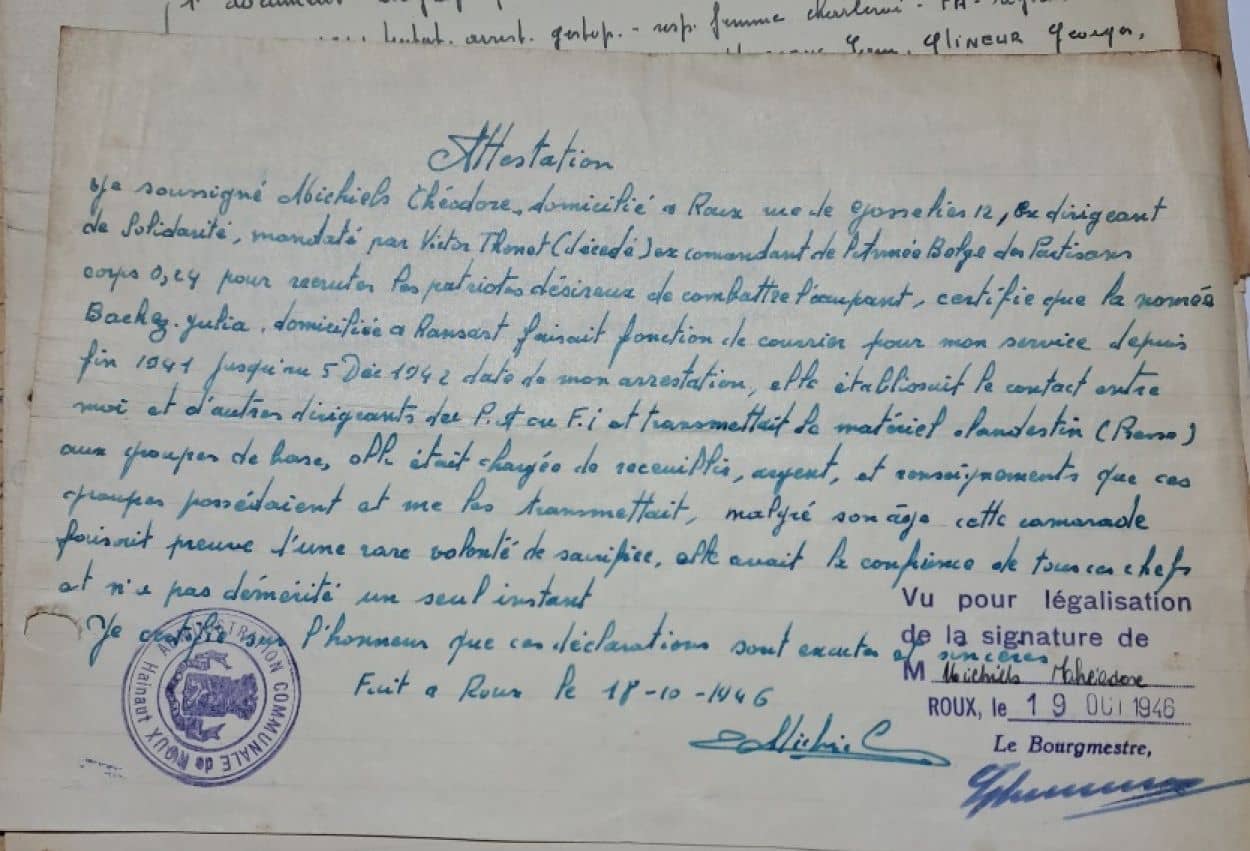 arrest. gestap. - resp. femme Charleroi - PA -
GLINEUR Georges,
Attestation
Je soussigné Michiels Théodore, domicilié a Roux rue de Gosselies 12, Ex dirigeant
de Solidarité, mandaté par Victor Thonet (décedé) ex comandant de l'Armée Belge des Partisans
corps 0,24 pour recruter les patriotes désireux de combattre l'ocupant, certifie que la nomée
Backez Julia, domiciliée a Ransart faisait fonction de courrier pour mon service depuis
fin 1941 jusqu'au 5 Déc 1942 date de mon arrestation, elle établissait le contact entre
moi et d'autres dirigeants du P.A ou F.i et transmettait le matériel clandestin (Presse)
aux groupes de base, elle était chargée de receuillir, argent, et renseignements que ces
groupes possédaient et me les transmettait, malgré son âge cette camarade
faisait preuve d'une rare volonté de sacrifice, elle avait la confience de tous ces chefs
et n'a pas démérité un seul instant
Je certifie sur l'honneur que ces déclarations sont exactes et sincères
Fait a Roux le 18-10-1946
ADMINISTRATION COMMUNALE de ROUX Hainaut
Vu pour légalisation
de la signature de
M Michiels Théodore
ROUX, le 19 OCT 1946
Le Bourgmestre,